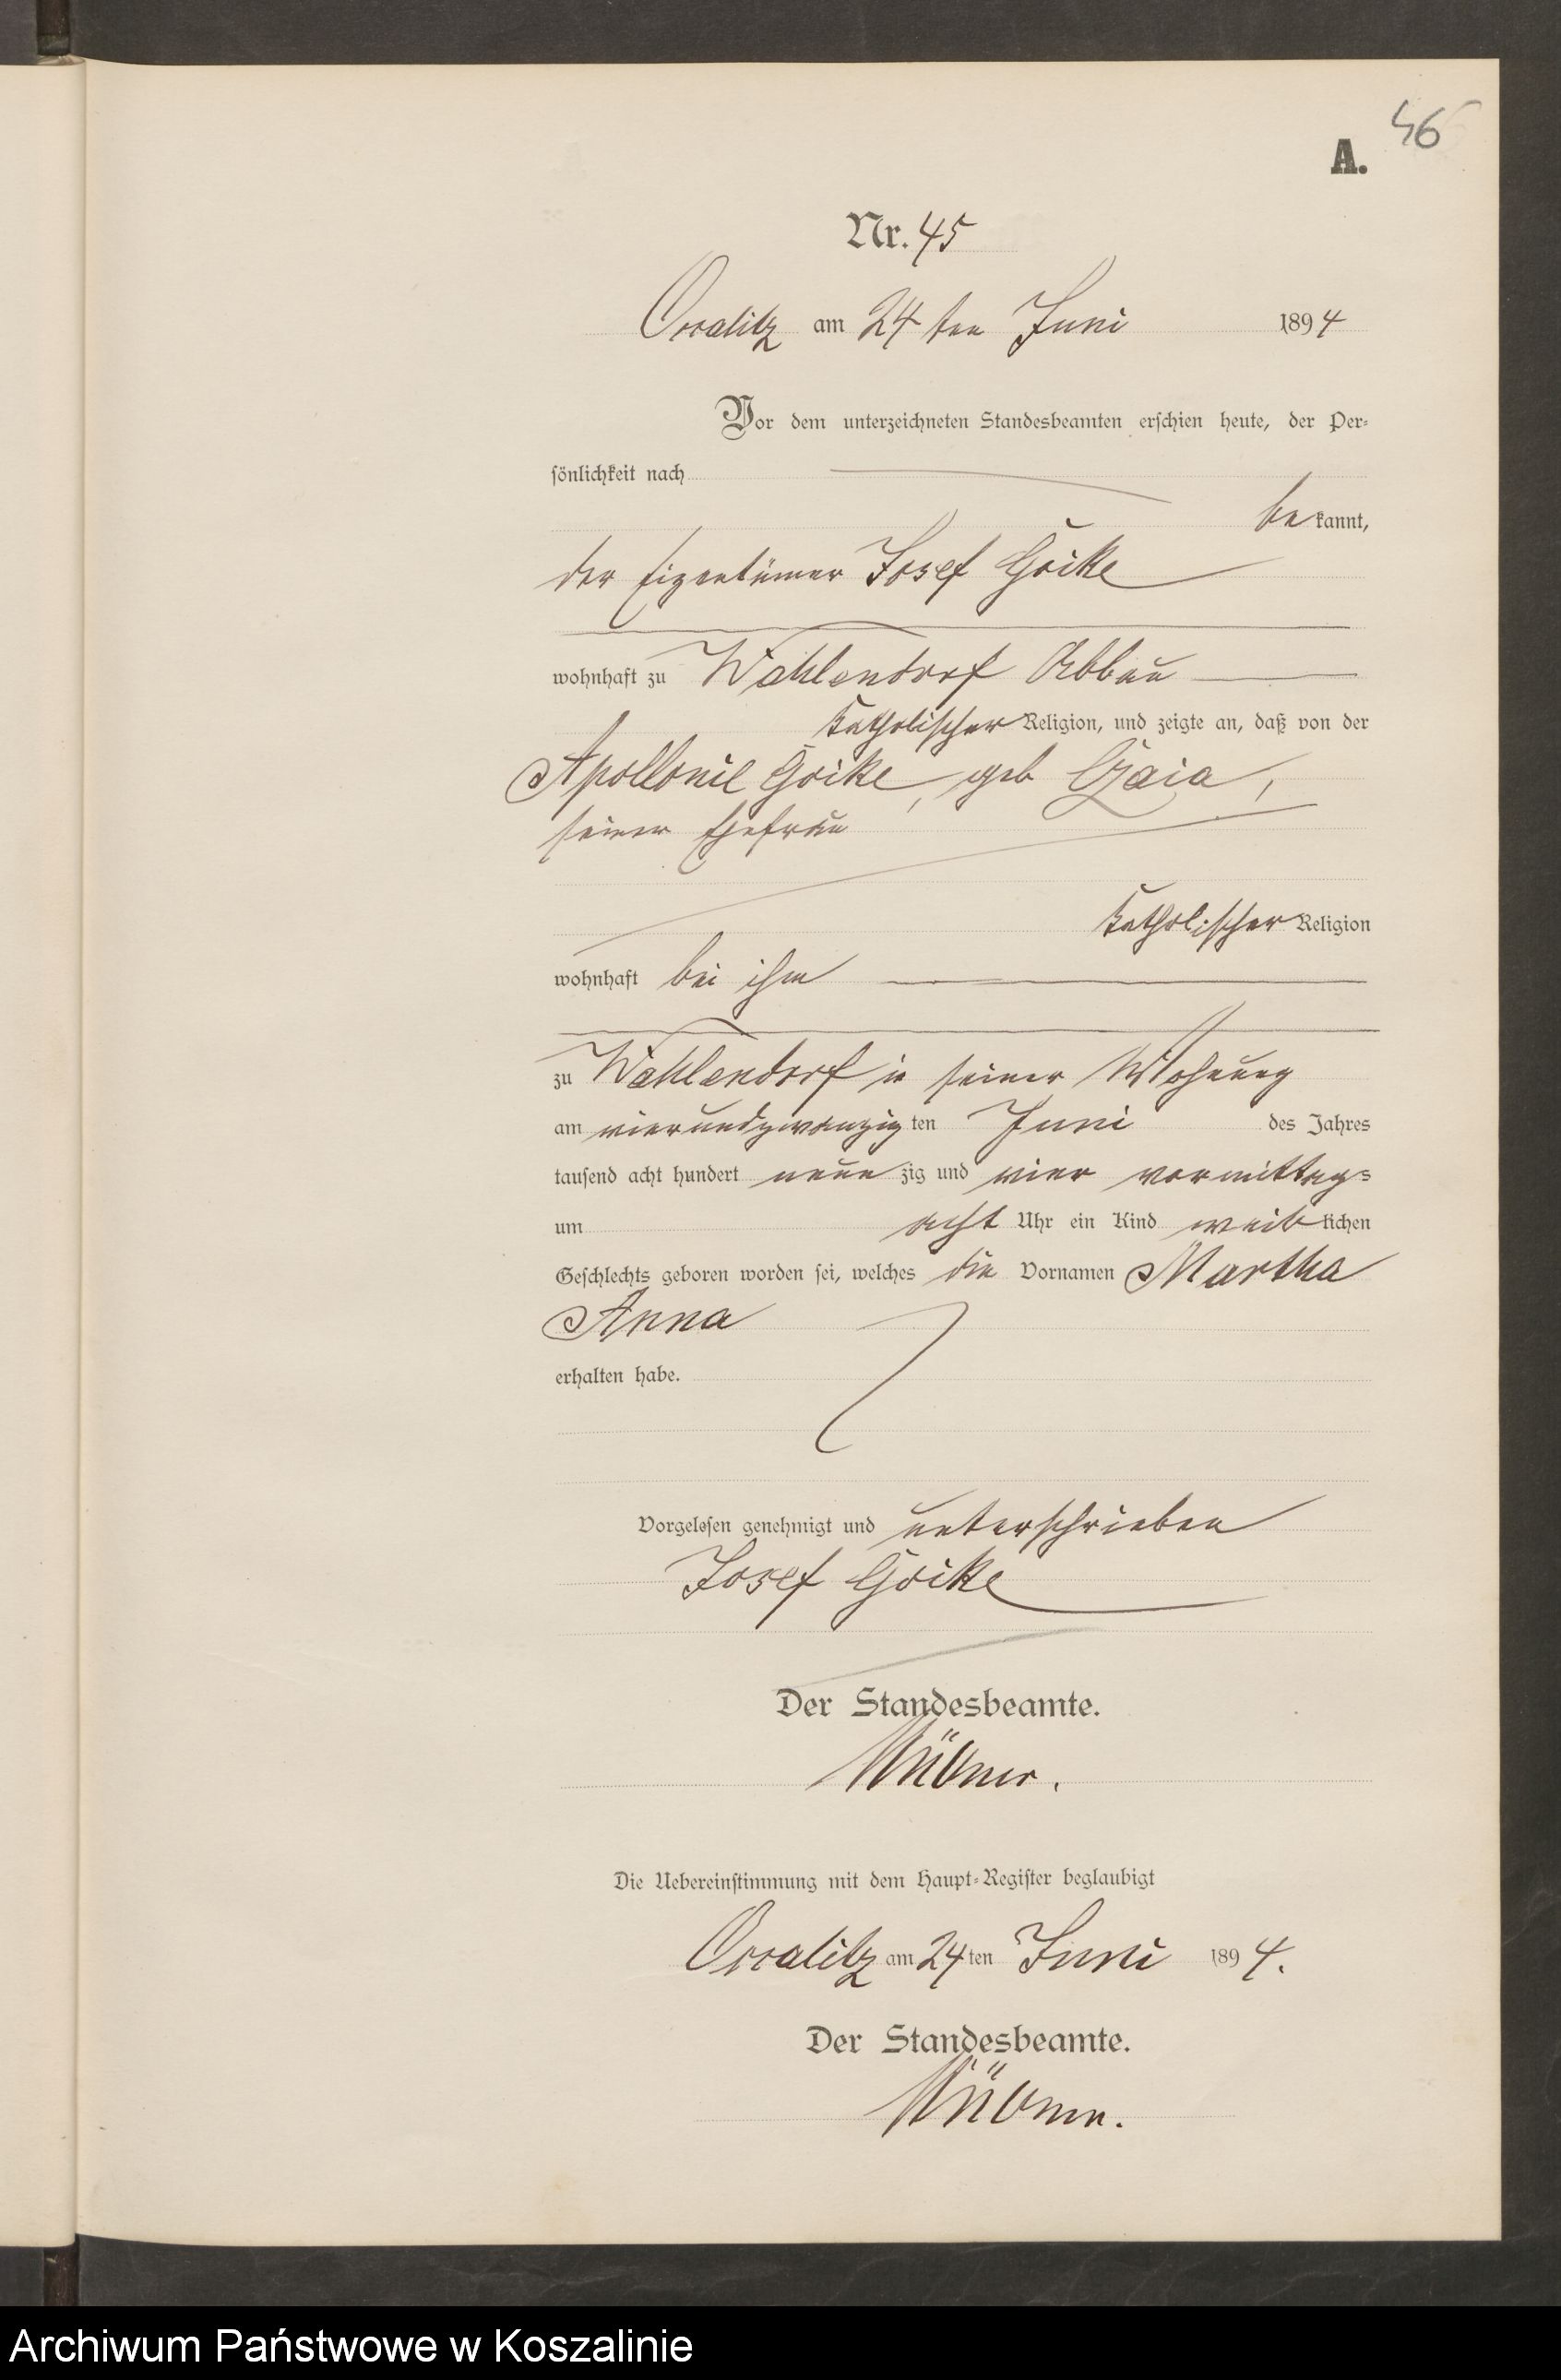 46
A.
Nr. 45
Ossalitz am 24 ten Juni 1894
Vor dem unterzeichneten Standesbeamten erschien heute, der Per-
sönlichkeit nach
bekannt,
der Eigentümer Josef Goike
wohnhaft zu Wahlendorf Abbau
katholischer Religion, und zeigte an, daß von der
Apollonie Goike, geb
seiner Ehefrau
katholischer Religion
wohnhaft bei ihm
zu Wahlendorf in seiner Wohnung
am vierundzwanzigten Juni des Jahres
tausend acht hundert neunzig und vier vormittags
um acht Uhr ein Kind weiblichen
Geschlechts geboren worden sei, welches die Vornamen Martha
Anna
erhalten habe.
Vorgelesen genehmigt und unterschrieben
Josef Goike
Der Standesbeamte.
Die Uebereinstimmung mit dem Haupt-Register beglaubigt
Ossalitz am 24ten Juni 1894.
Der Standesbeamte.
Archiwum Państwowe w Koszalinie